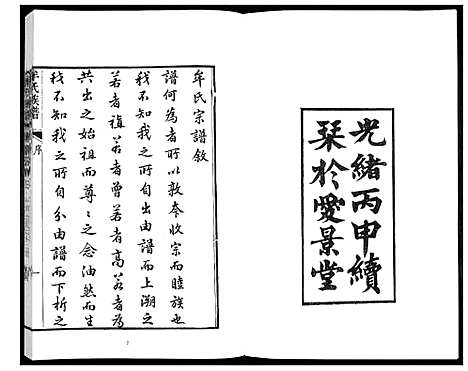 光緒丙申續
琹於愛景堂
牟氏宗譜敘
譜何為者所以敦本收宗而睦族也
我不知我之所自出由譜而上溯之
若者禰若者曾若者高若者為
共出之始祖而尊尊之念油然而生
我不知我之所自分由譜而下析之
牟氏族譜
序
一